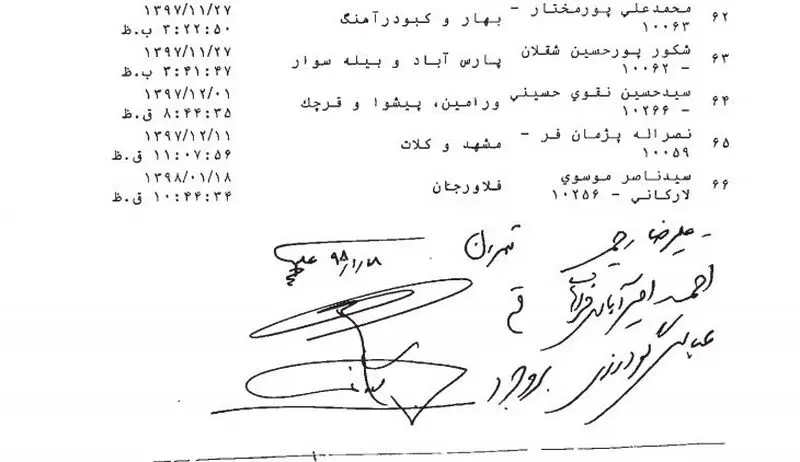 ۶۲ محمدعلي پورمختار - بهار و كبودرآهنگ ۱۳۹۷/۱۱/۲۷
۱۰۰۶۳ ۳:۲۲:۵۰ ب.ظ
۶۳ شكور پورحسين شقلان پارس آباد و بيله سوار ۱۳۹۷/۱۱/۲۷
- ۱۰۰۶۲ ۳:۴۱:۴۷ ب.ظ
۶۴ سيدحسين نقوي حسيني ورامين، پيشوا و قرچك ۱۳۹۷/۱۲/۰۱
- ۱۰۲۶۶ ۸:۴۴:۳۵ ق.ظ
۶۵ نصراله پژمان فر - مشهد و كلات ۱۳۹۷/۱۲/۱۱
۱۰۰۵۹ ۱۱:۰۷:۵۶ ق.ظ
۶۶ سيدناصر موسوي فلاورجان ۱۳۹۸/۰۱/۱۸
لارگاني - ۱۰۲۵۶ ۱۰:۴۴:۳۴ ق.ظ
- علیرضا رحیمی تهران ۹۸/۱/۱۸
احمد امیرآبادی فراهانی قم
عباس گودرزی بروجرد